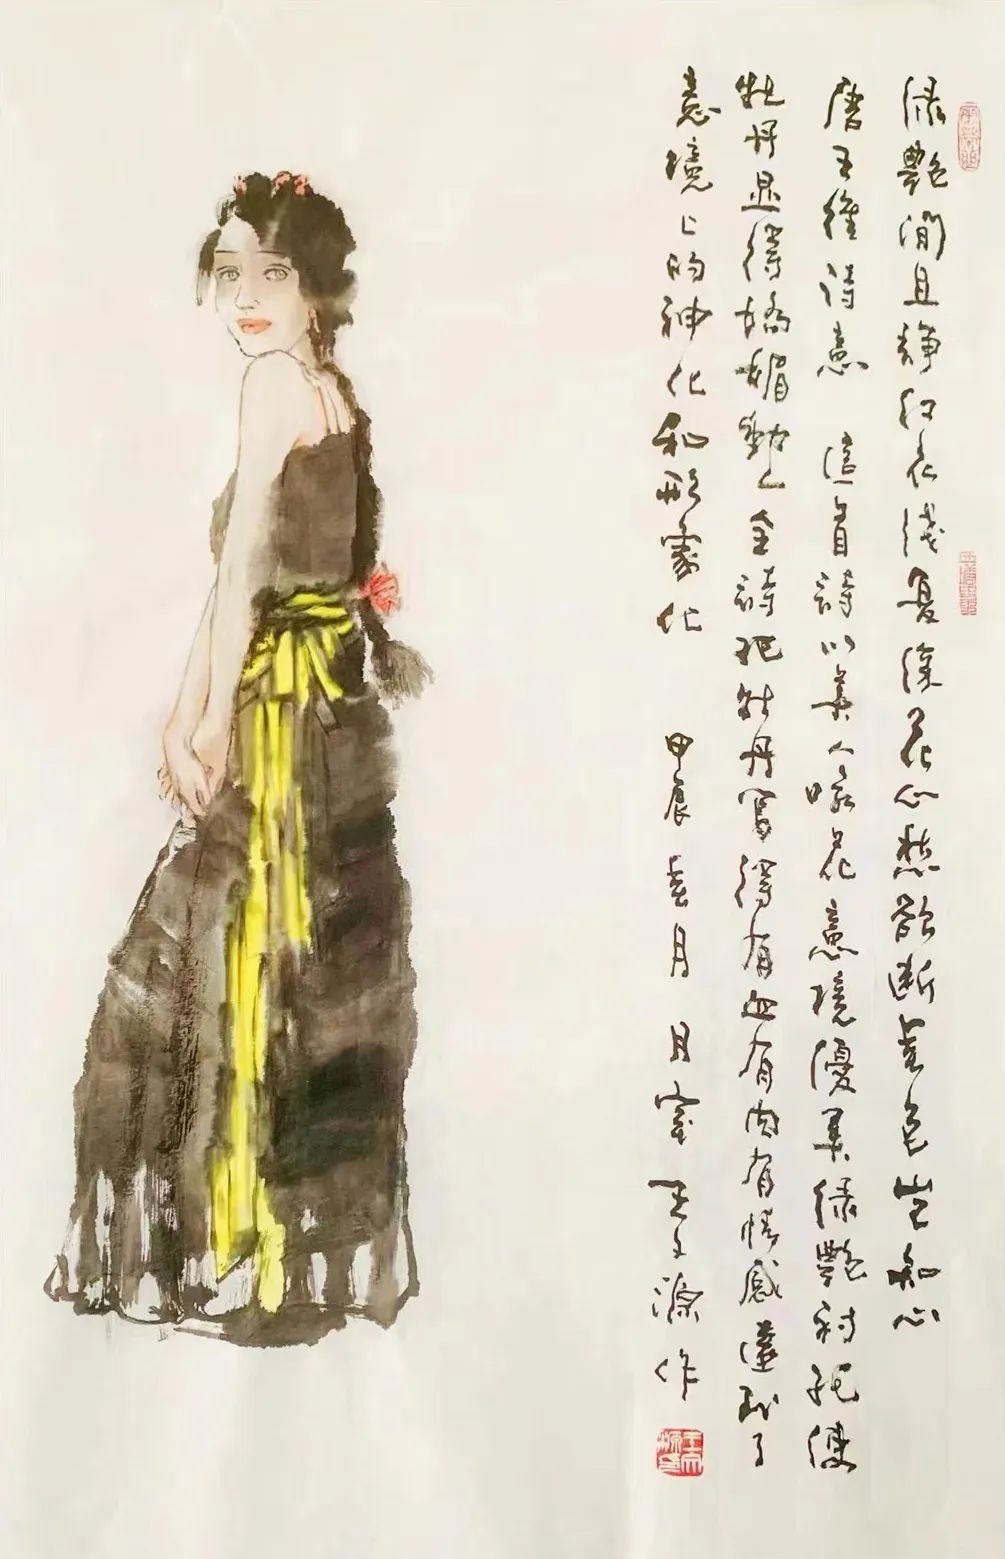 绿艷閒且静红衣浅复深花心愁欲断春色岂知心
唐王維诗意 這首詩以美人咏花意境優美绿艷衬托使
牡丹显得嬌媚動人全詩把牡丹寫得有血有肉有情感達到了
意境上的神化和形象化 甲辰春月 月室 王文源作